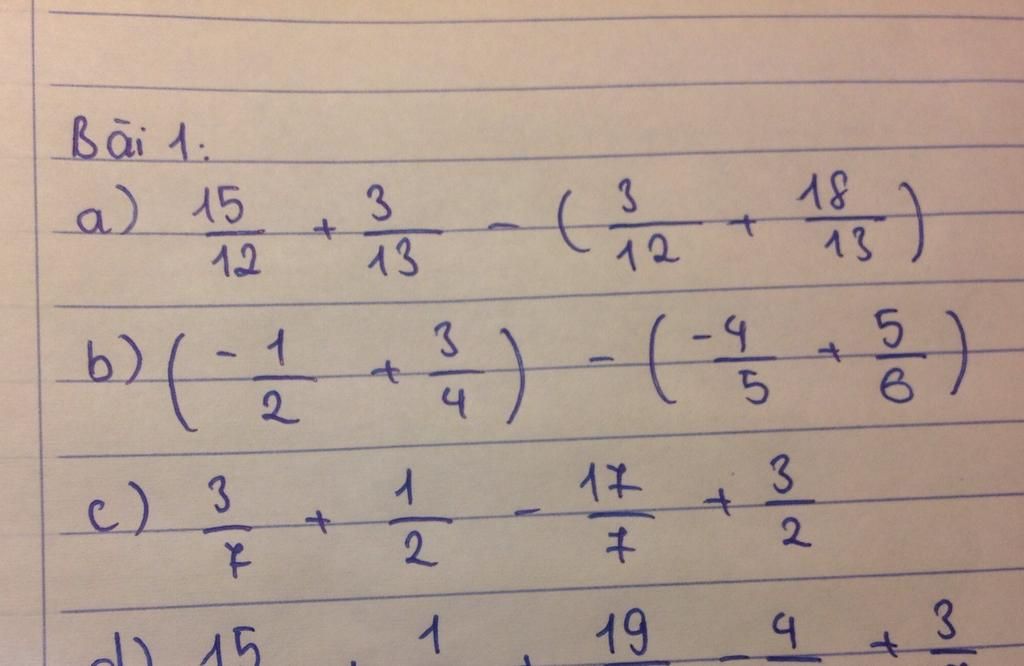 Bài 1:
a) 15/12 + 3/13 - (3/12 + 18/13)
b) (-1/2 + 3/4) - (-4/5 + 5/6)
c) 3/7 + 1/2 - 17/7 + 3/2
d) 15 1 19 - 4 + 3